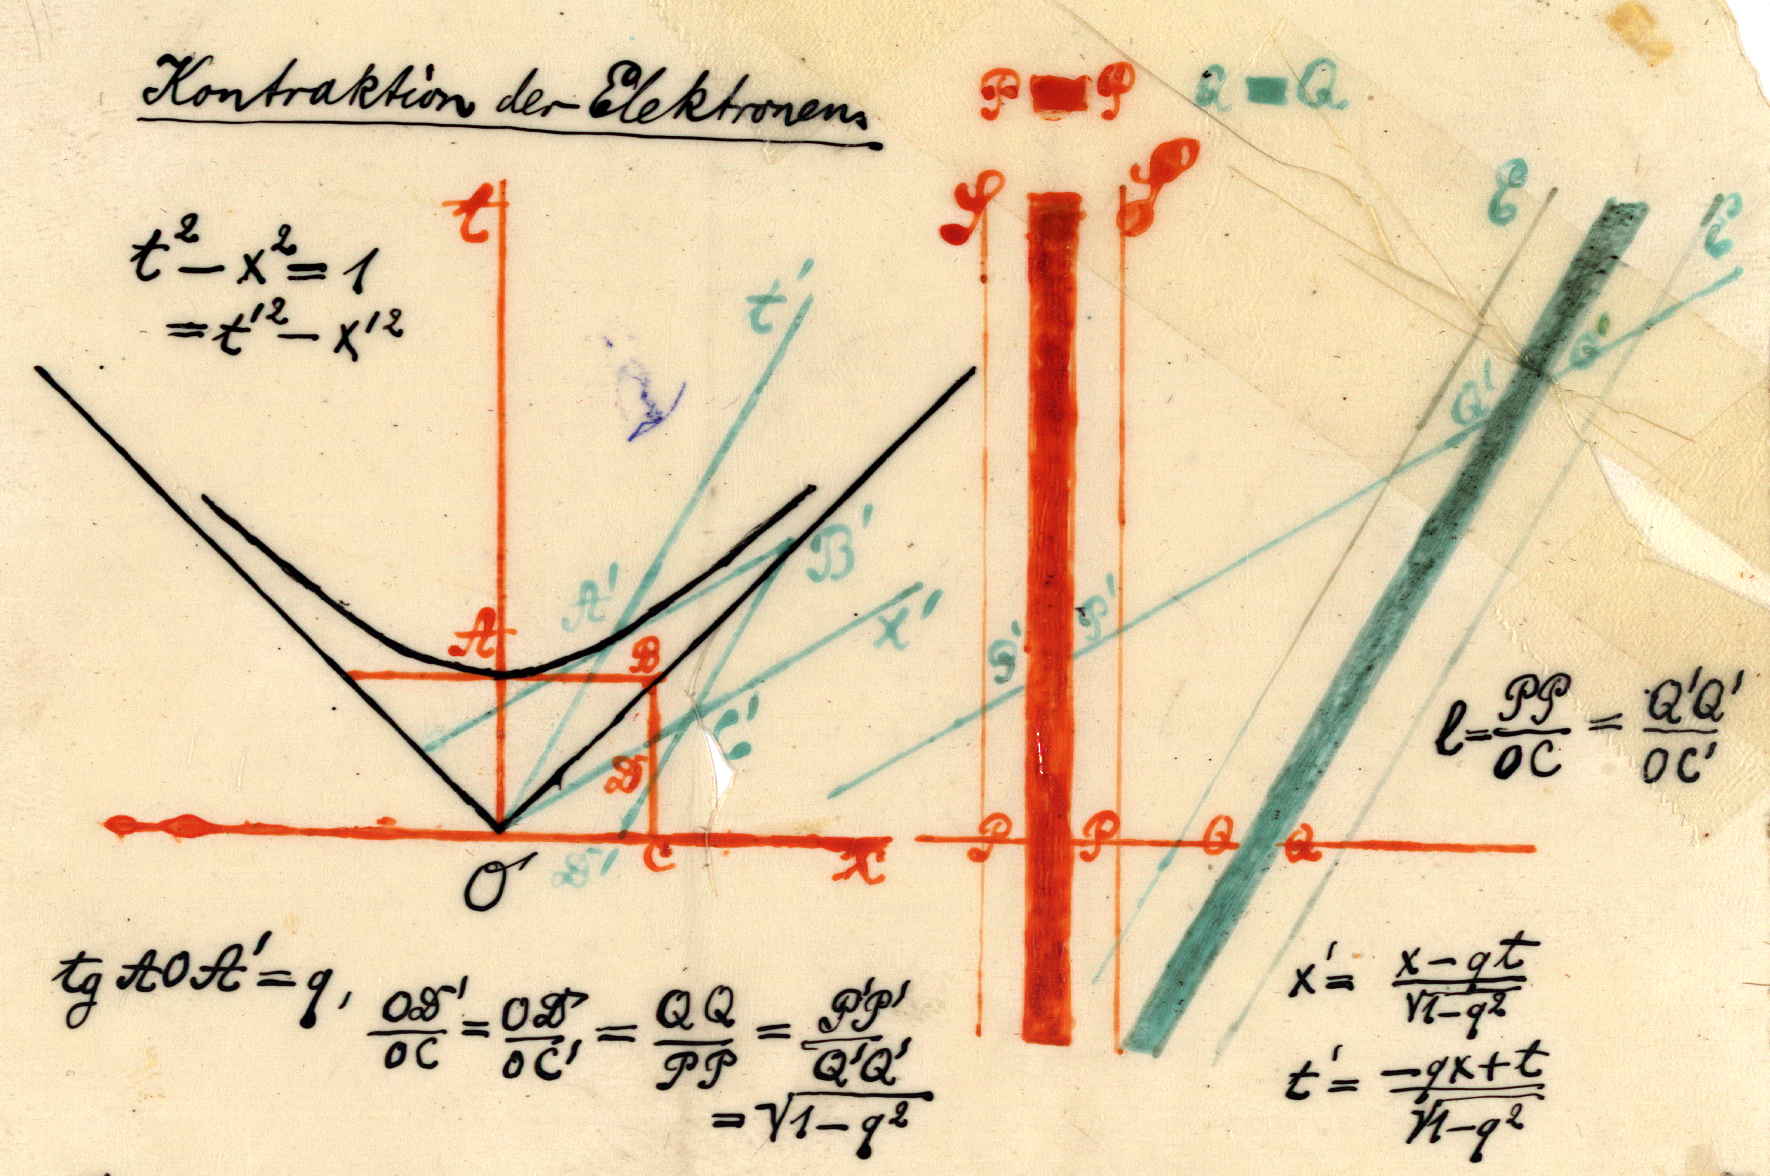 Kontraktion der Elektronen.
P P Q Q
t² − x² = 1
= t'² − x'²
t
t'
A
A'
B
B'
x'
C'
D
D'
C
x
O
P' P'
Q' Q'
P P Q Q
l = PP/OC = Q'Q'/OC'
tg AOA' = q,
OD'/OC = OD/OC' = QQ/PP = P'P'/Q'Q'
= √1−q²
x' = x − qt/√1−q²
t' = −qx + t/√1−q²